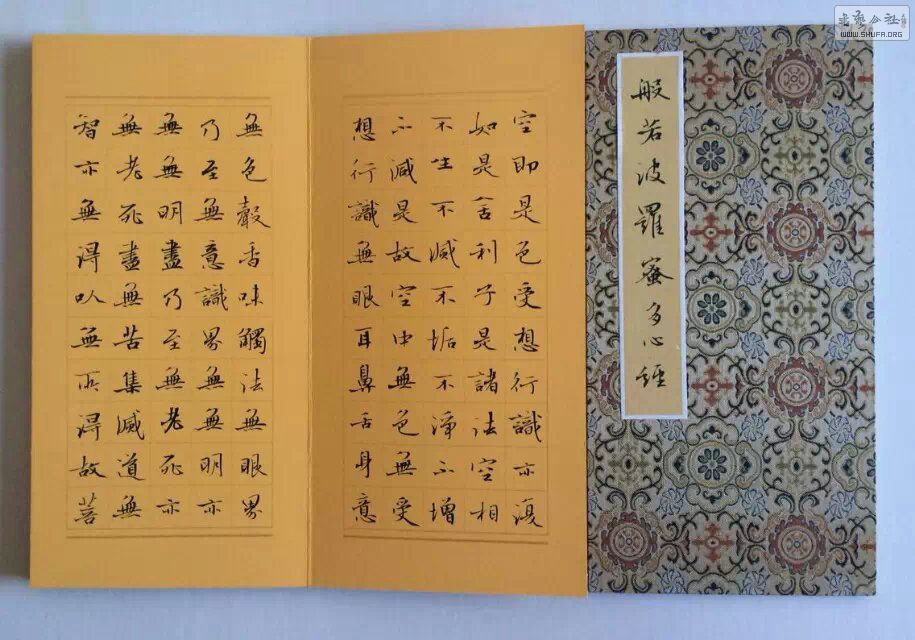 書藝公社
WWW.SHUFA.ORG
般若波羅蜜多心經
空即是色受想行識亦復
如是舍利子是諸法空相
不生不滅不垢不淨不增
不減是故空中無色無受
想行識無眼耳鼻舌身意
無色聲香味觸法無眼界
乃至無意識界無無明亦
無無明盡乃至無老死亦
無老死盡無苦集滅道無
智亦無得以無所得故菩